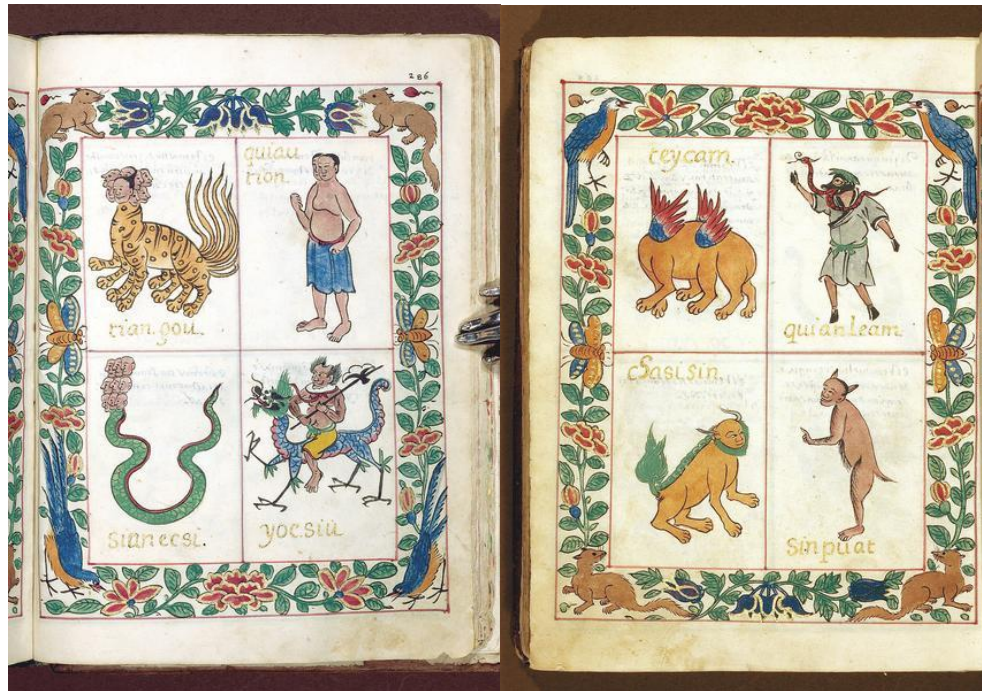 286
quiau
tion.
tian.gou.
siunecsi.
yocsiu
teycam.
quianleam.
Sasisin
Sinpuat